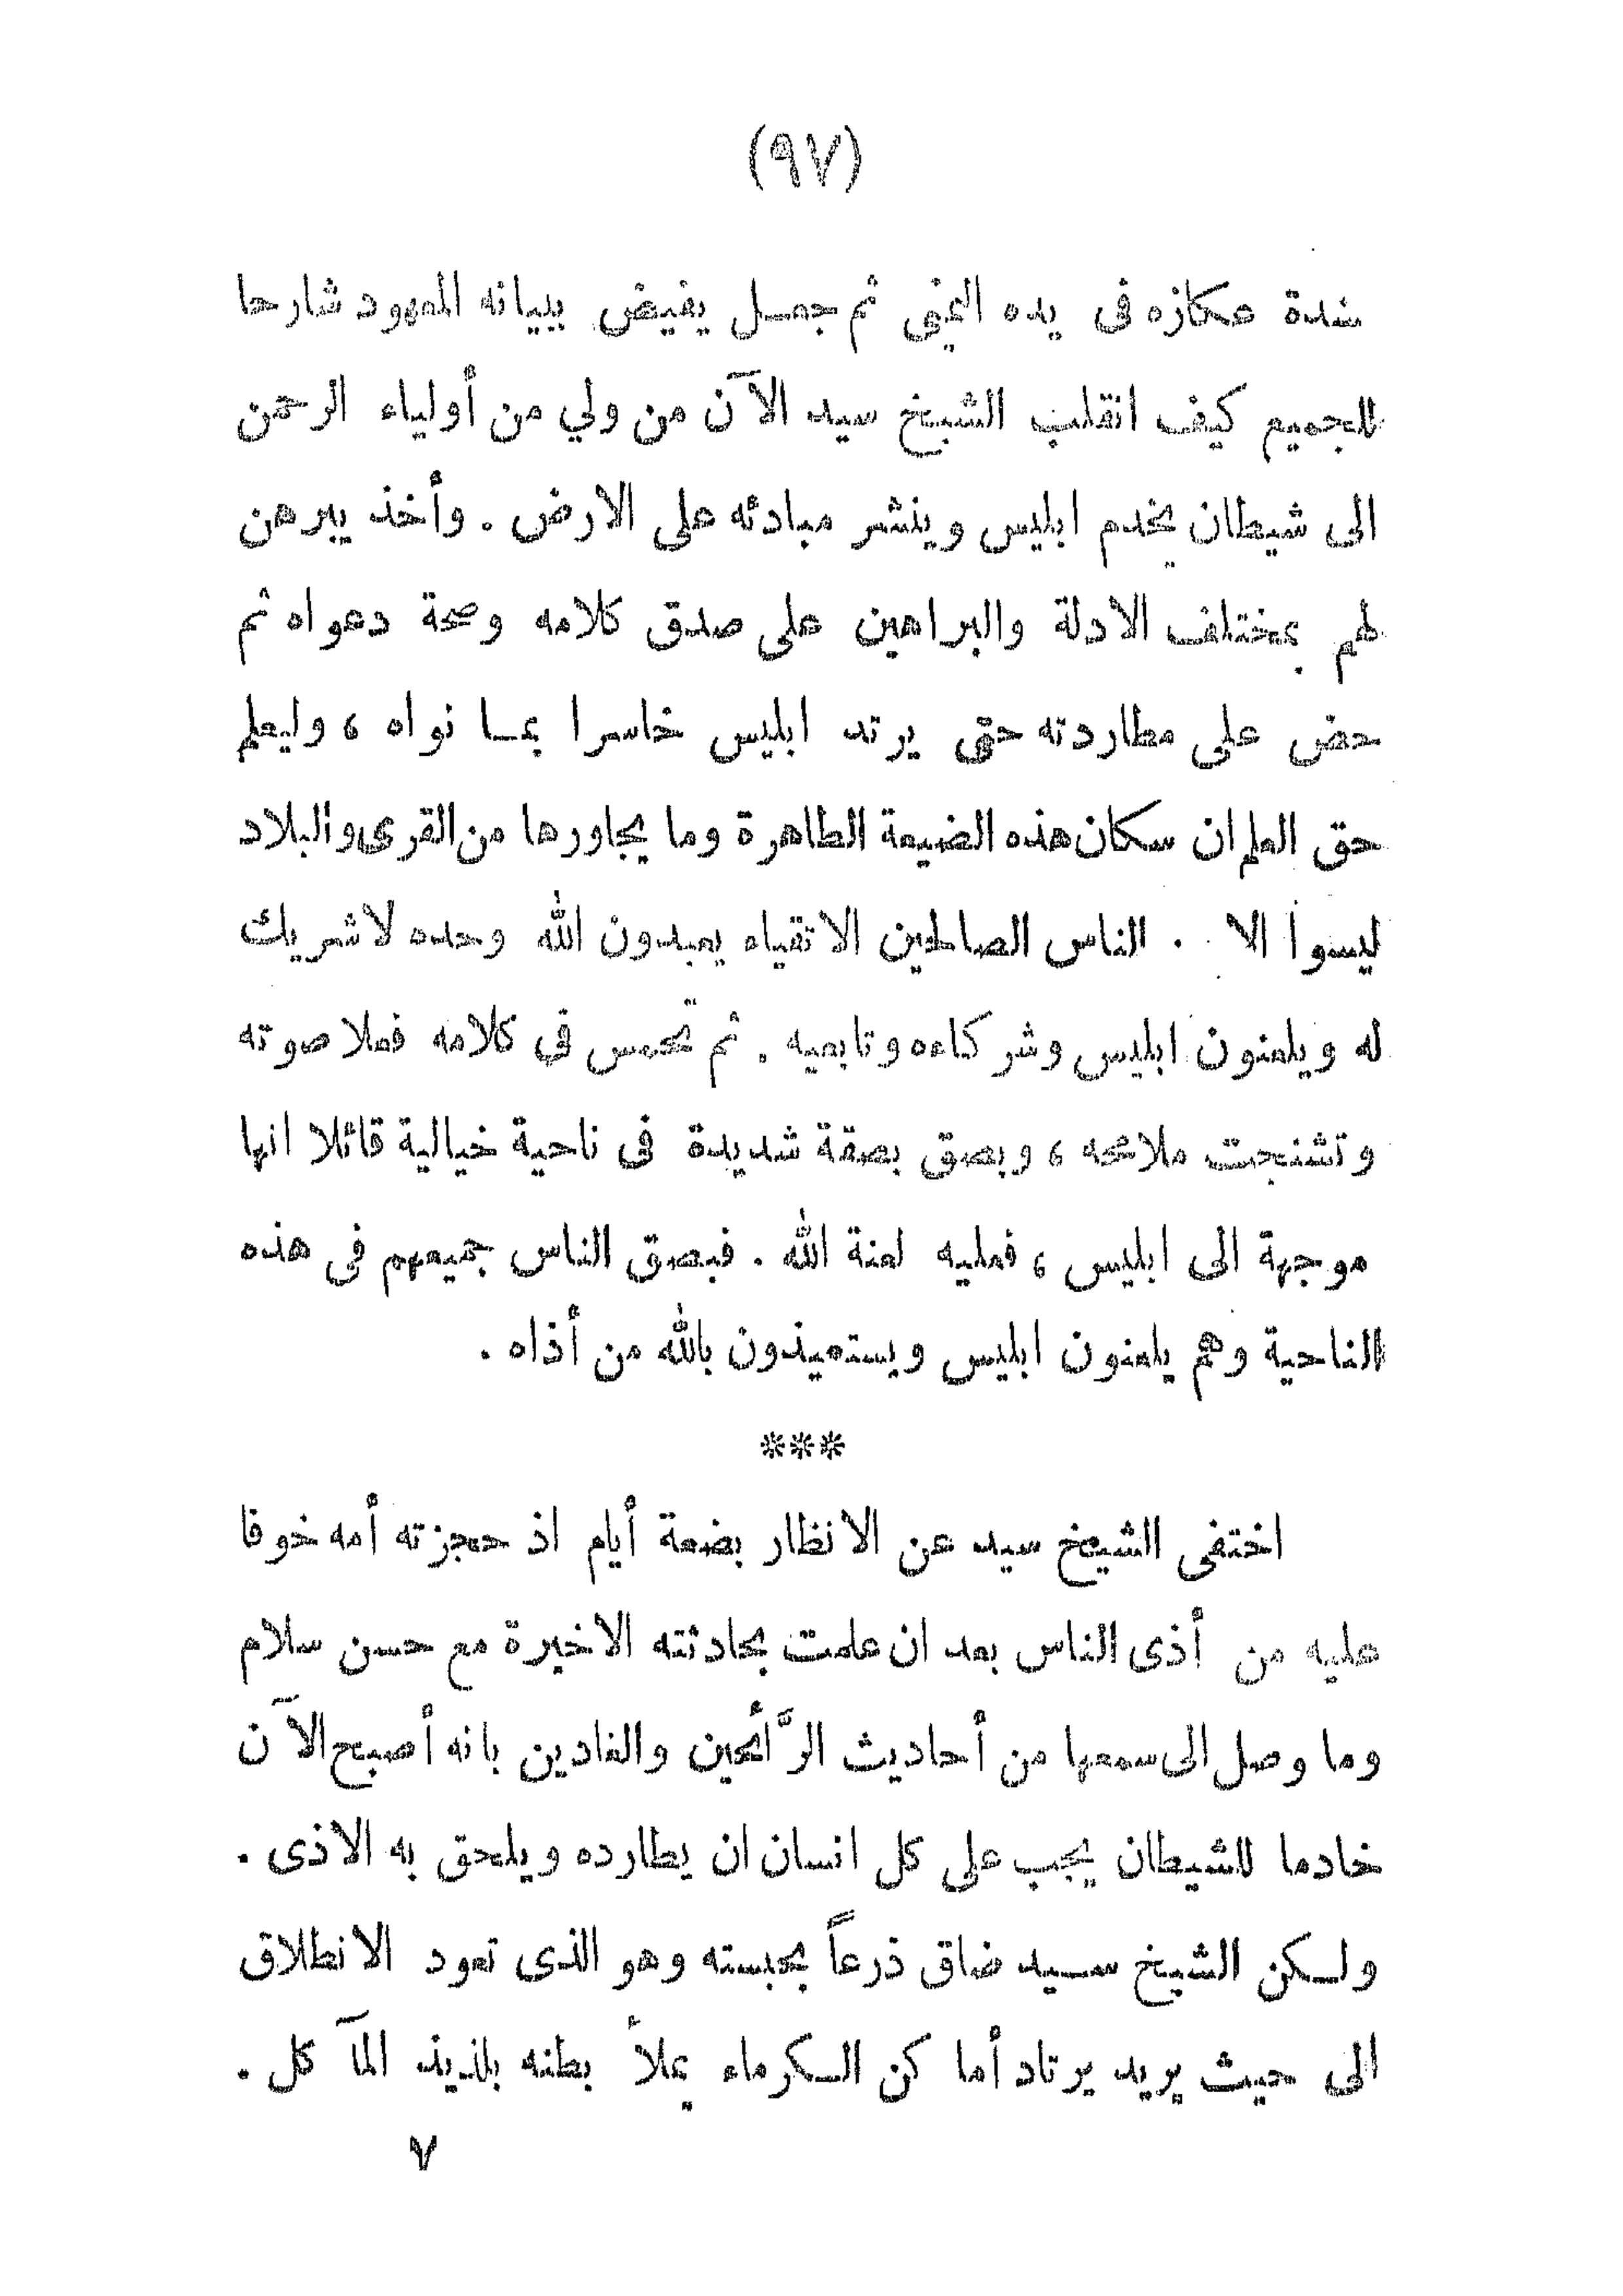 (٩٧)
بشدة عكازه فى يده اليمنى ثم جعـل يفيض ببيانه المعهود شارحا
للجميع كيف انقلب الشيخ سيد الآن من ولي من أولياء الرحمن
الى شيطان يخدم ابليس وينشر مبادئه على الارض . وأخذ يبرهن
لهم بمختلف الادلة والبراهين على صدق كلامه وصحة دعواه ثم
حض على مطاردته حتى يرتد ابليس خاسرا بمـا نواه ، وليعلم
حق العلم ان سكان هذه الضيعة الطاهرة وما يجاورها من القرى والبلاد
ليسوا الا . الناس الصالحين الاتقياء يعبدون الله وحده لاشريك
له ويلعنون ابليس وشركاءه وتابعيه . ثم تحمس في كلامه فعلا صوته
وتشنجت ملامحه ، وبصق بصقة شديدة فى ناحية خيالية قائلا انها
موجهة الى ابليس ، فعليه لعنة الله . فبصق الناس جميعهم فى هذه
الناحية وهم يلعنون ابليس ويستعيذون بالله من أذاه .
***
اختفى الشيخ سيد عن الانظار بضعة أيام اذ حجزته أمه خوفا
عليه من أذى الناس بعد ان علمت بحادثته الاخيرة مع حسن سلام
وما وصل الى سمعها من أحاديث الرَّائحين والغادين بانه أصبح الآن
خادما للشيطان يجب على كل انسان ان يطارده ويلحق به الاذى .
ولـكن الشيخ سـيد ضاق ذرعاً بحبسته وهو الذى تعود الانطلاق
الى حيث يريد يرتاد أماكن الـكرماء يملأ بطنه بلذيذ المآكل .
٧